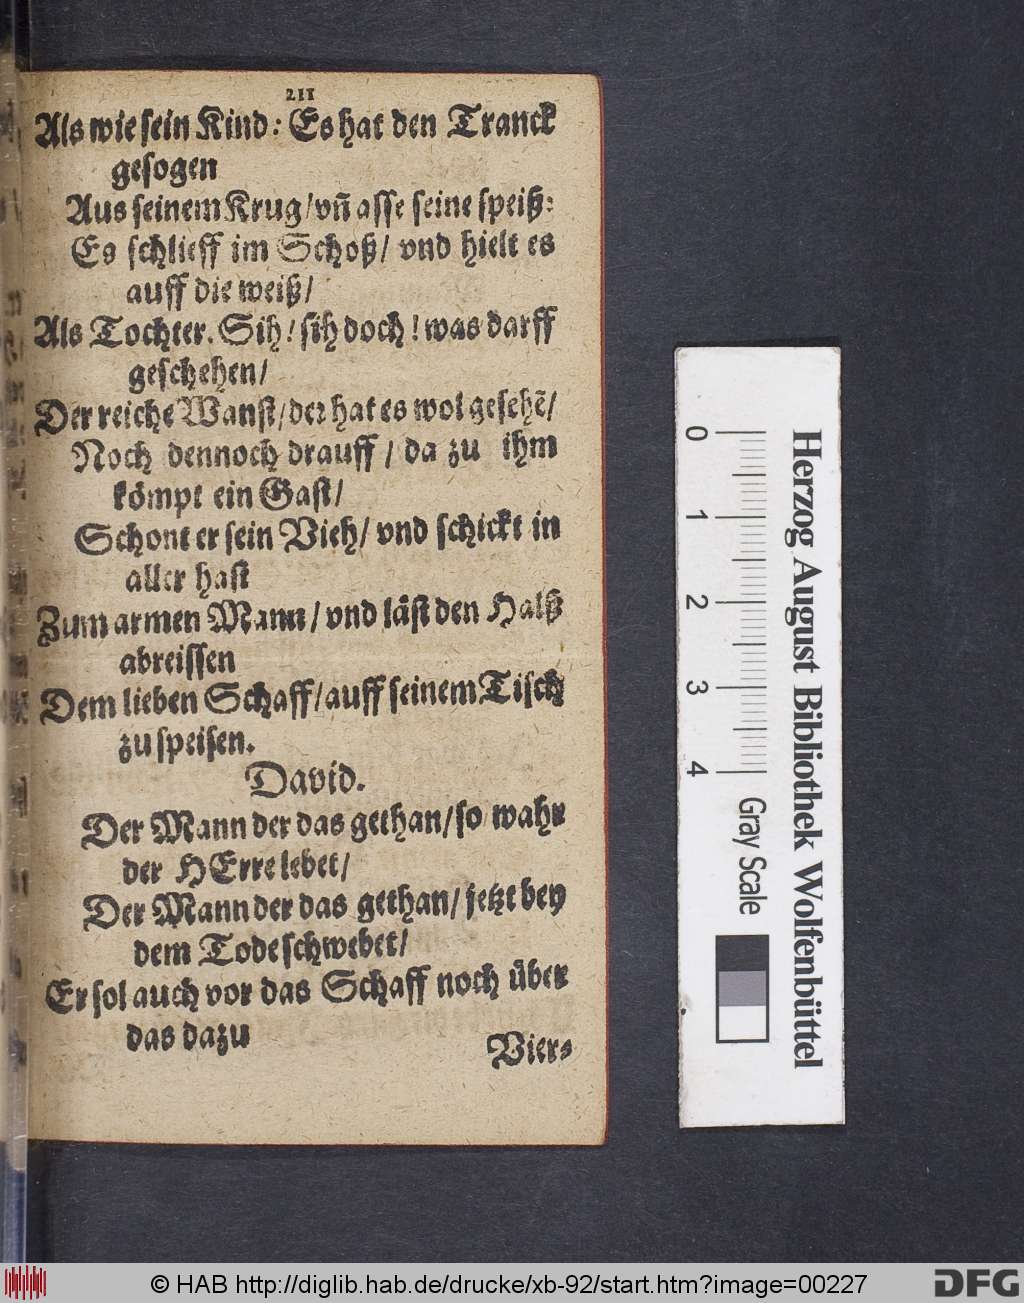 211
Als wie sein Kind: Es hat den Tranck
gesogen
Aus seinem Krug/vn̄ asse seine speiß:
Es schlieff im Schoß/ vnd hielt es
auff die weiß/
Als Tochter. Sih! sih doch! was darff
geschehen/
Der reiche Wanst/der hat es wol gesehē/
Noch dennoch drauff/ da zu ihm
kömpt ein Gast/
Schont er sein Vieh/ vnd schickt in
aller hast
Zum armen Mann/ vnd läst den Halß
abreissen
Dem lieben Schaff/auff seinem Tisch
zu speisen.
David.
Der Mann der das gethan/so wahr
der HErre lebet/
Der Mann der das gethan/ jetzt bey
dem Tode schwebet/
Er sol auch vor das Schaff noch über
das dazu
Vier-
Herzog August Bibliothek Wolfenbüttel
0 1 2 3 4
Gray Scale
© HAB http://diglib.hab.de/drucke/xb-92/start.htm?image=00227
DFG